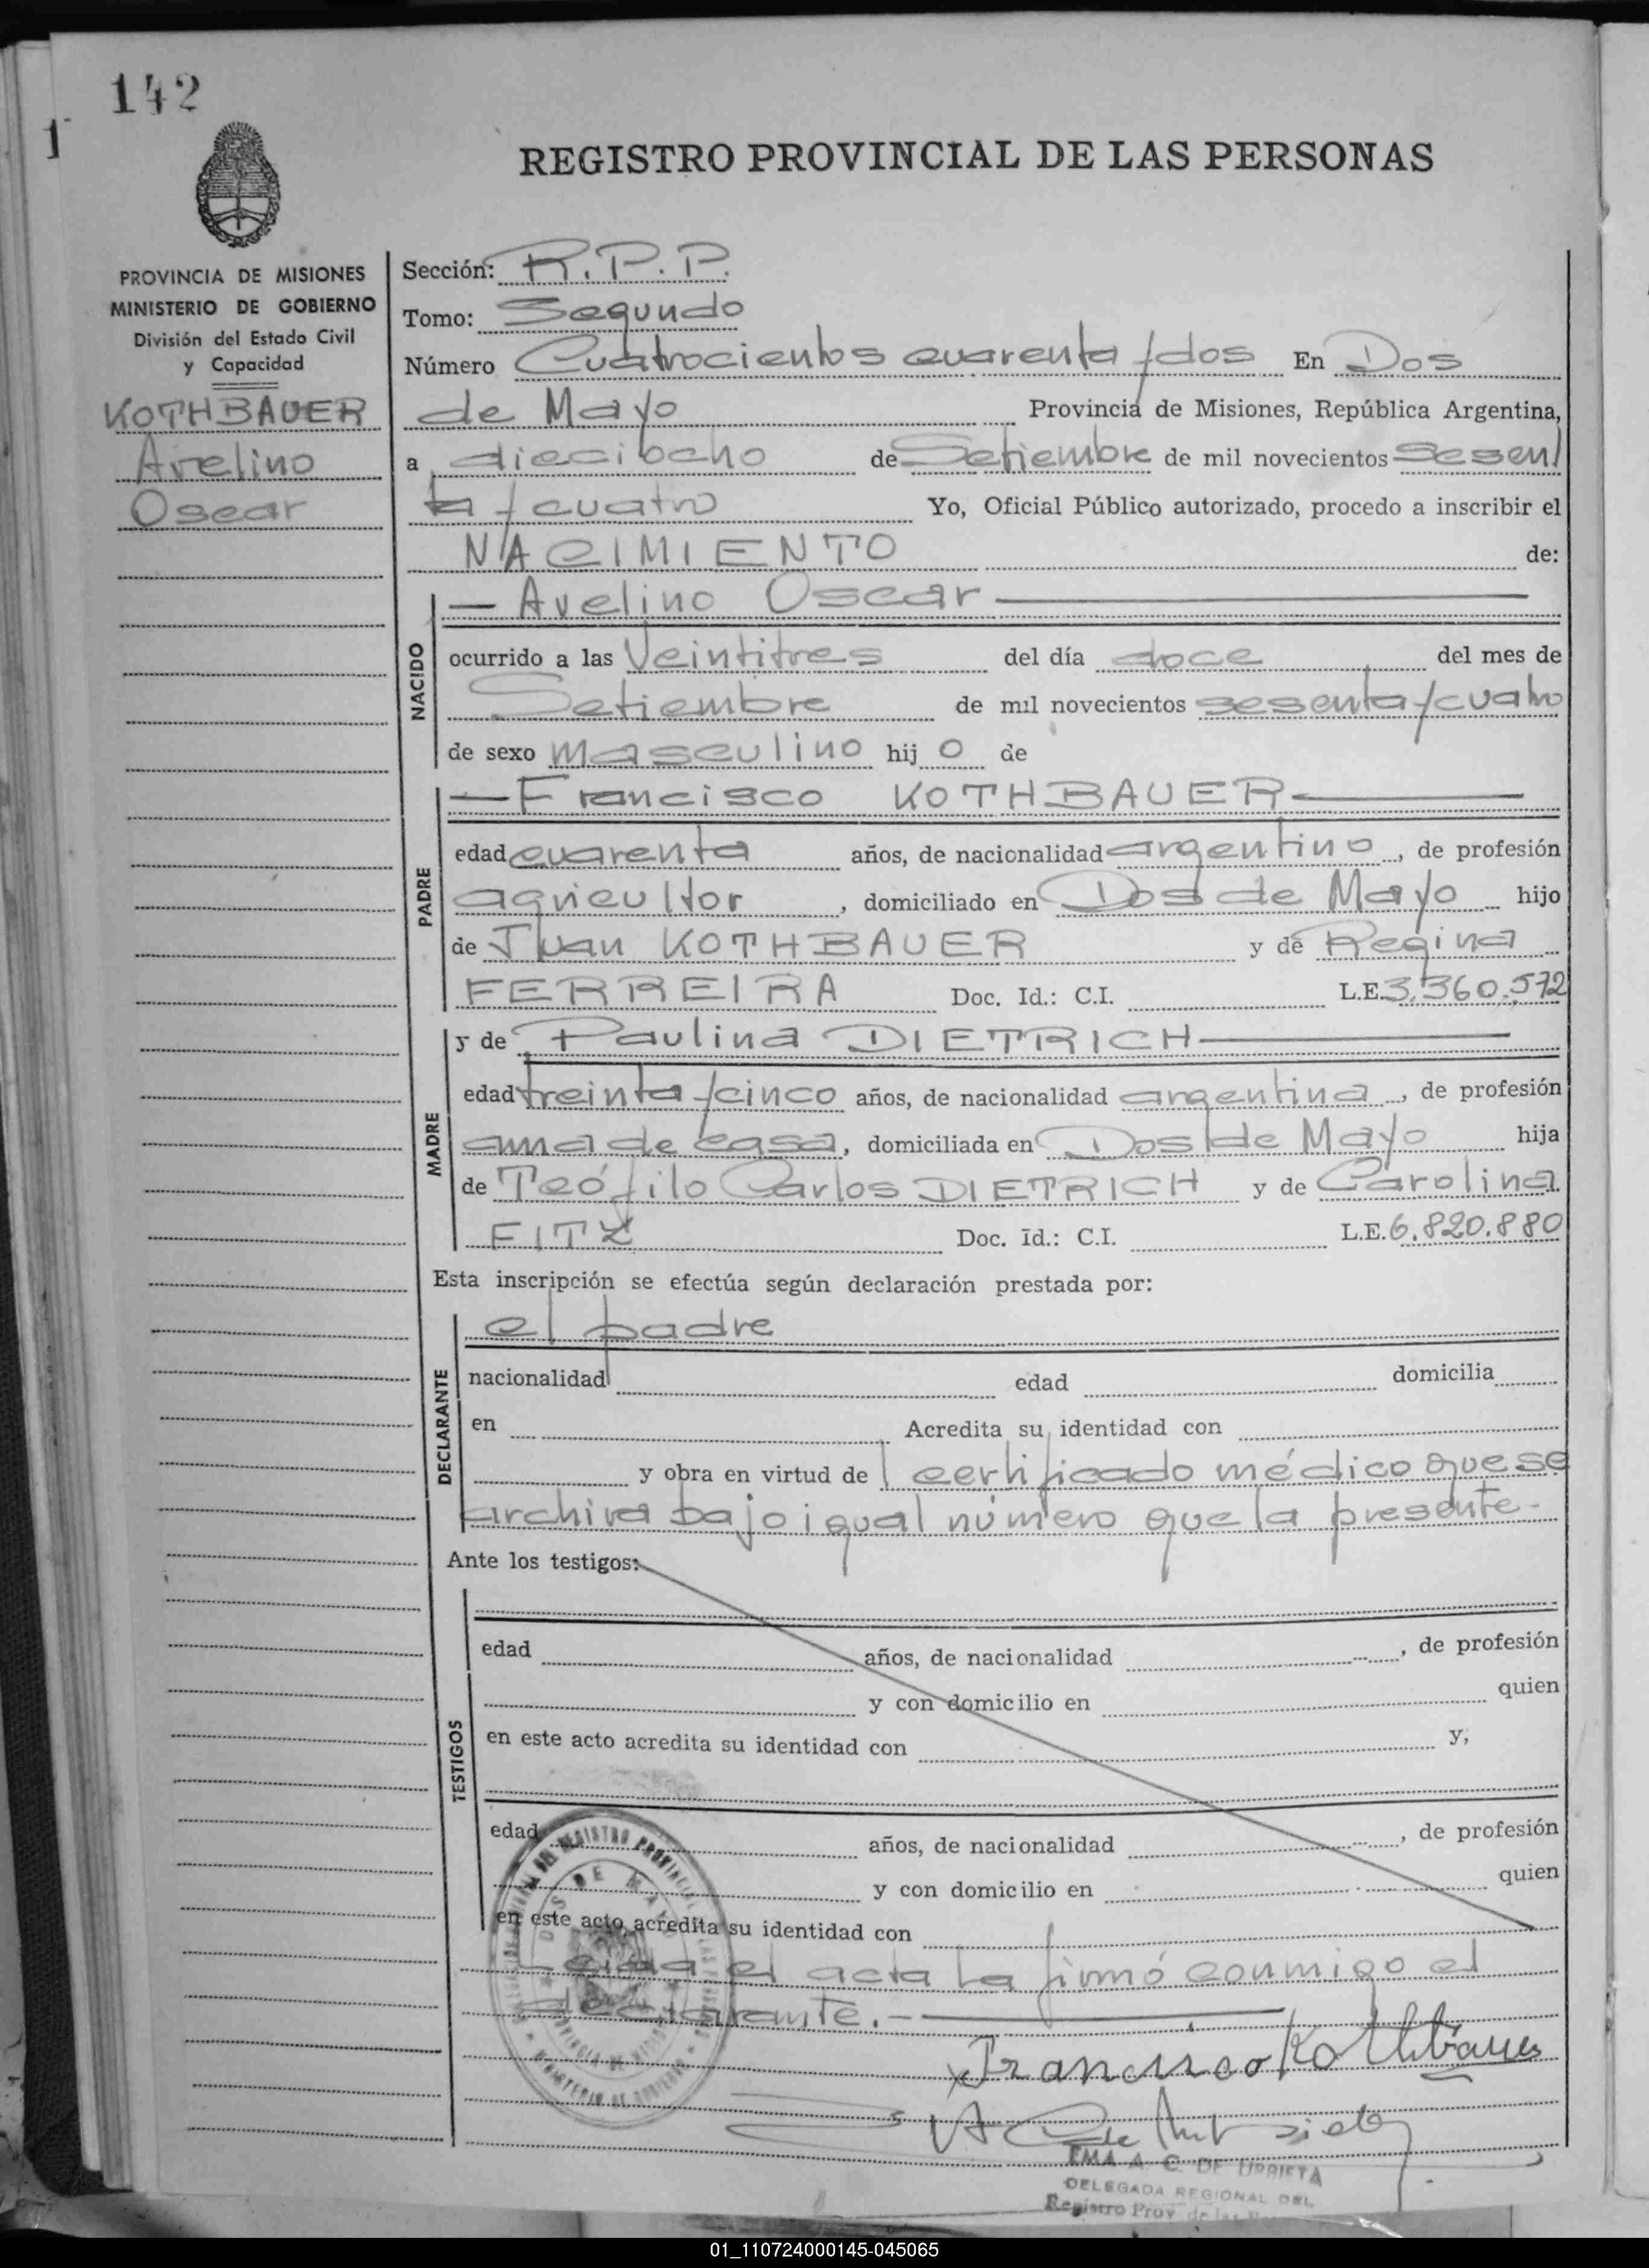 142
1
REGISTRO PROVINCIAL DE LAS PERSONAS
PROVINCIA DE MISIONES
MINISTERIO DE GOBIERNO
División del Estado Civil
y Capacidad
KOTHBAUER
Avelino
Oscar
Sección: R.P.P.
Tomo: Segundo
Número Cuatrocientos cuarenta y dos En Dos
de Mayo Provincia de Misiones, República Argentina,
a dieciocho de Setiembre de mil novecientos Sesen/
ta y cuatro Yo, Oficial Público autorizado, procedo a inscribir el
NACIMIENTO de:
— Avelino Oscar —
NACIDO
ocurrido a las Veintitres del día doce del mes de
Setiembre de mil novecientos sesenta y cuatro
de sexo masculino hijo de
— Francisco KOTHBAUER —
PADRE
edad cuarenta años, de nacionalidad argentino, de profesión
agricultor, domiciliado en Dos de Mayo hijo
de Juan KOTHBAUER y de Regina
FERREIRA Doc. Id.: C.I. L.E. 3.360.572
y de Paulina DIETRICH —
MADRE
edad treinta y cinco años, de nacionalidad argentina, de profesión
ama de casa, domiciliada en Dos de Mayo hija
de Teófilo Carlos DIETRICH y de Carolina
FITZ Doc. Id.: C.I. L.E. 6.820.880
Esta inscripción se efectúa según declaración prestada por:
el padre
DECLARANTE
nacionalidad edad domicilia
en Acredita su identidad con
y obra en virtud de certificado médico que se
archiva bajo igual número que la presente.-
Ante los testigos:
TESTIGOS
edad años, de nacionalidad , de profesión
y con domicilio en quien
en este acto acredita su identidad con y,
edad años, de nacionalidad , de profesión
y con domicilio en quien
en este acto acredita su identidad con
Leida el acta la firmó conmigo el
declarante.-
DOS DE MAYO
MINISTERIO DE GOBIERNO
Francisco Kothbauer
EMA A. C. DE URRIETA
DELEGADA REGIONAL DEL
Registro Prov. de las
01_110724000145-045065